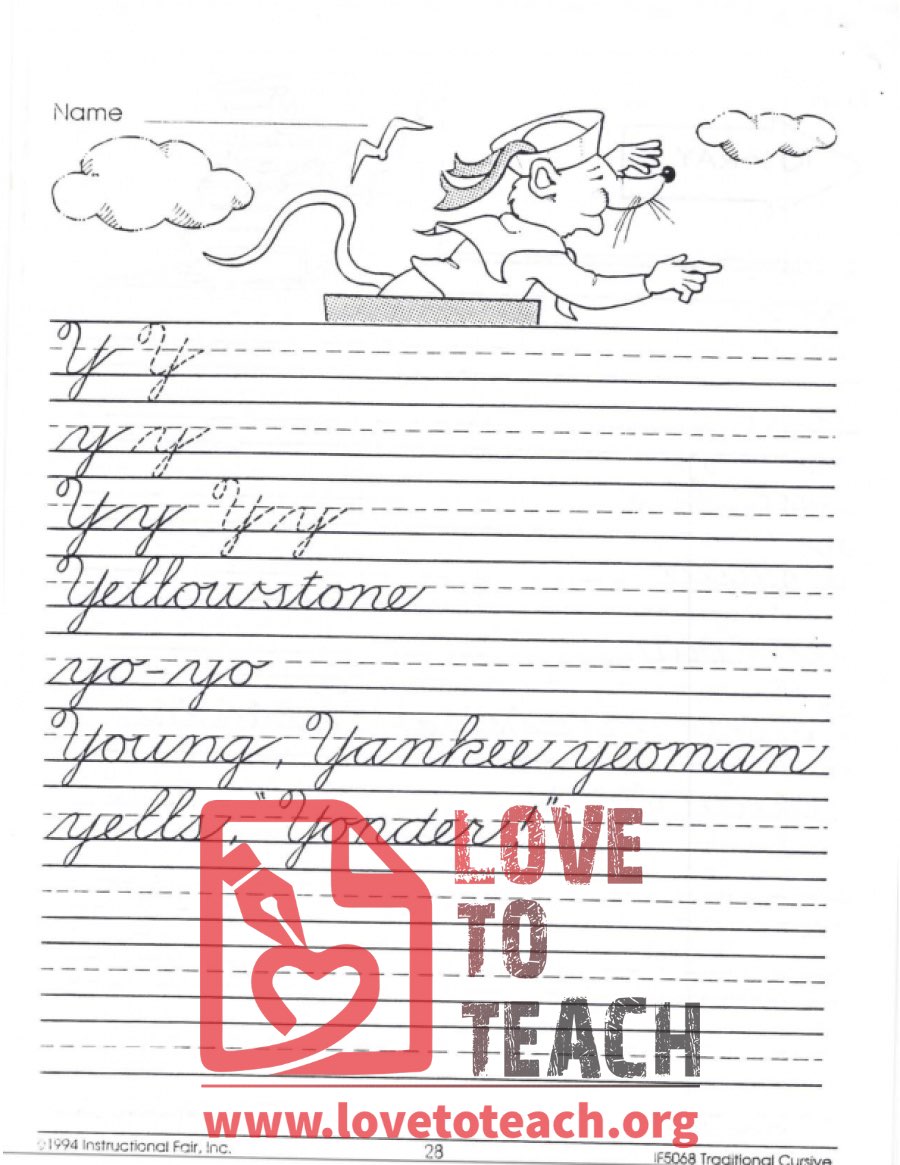 Name
Y Y
y y
Yy Yy
Yellowstone
yo-yo
Young, Yankee yeoman
yells, "Yonder!"
LOVE
TO
TEACH
www.lovetoteach.org
©1994 Instructional Fair, Inc. 28 IF5068 Traditional Cursive